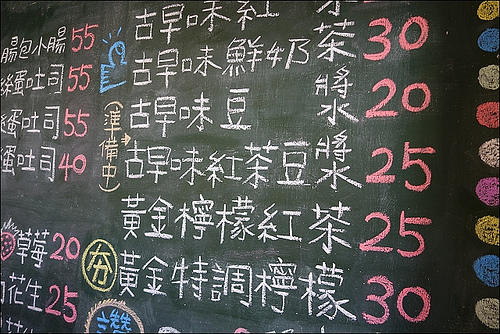 古早味紅茶
腸包小腸 55
古早味鮮奶茶 30
蛋吐司 55
古早味豆漿 20
蛋吐司 55
(準備中)
蛋吐司 40
古早味紅茶豆漿 25
黃金檸檬紅茶 25
草莓 20
夯 黃金特調檸檬 30
花生 25
讚